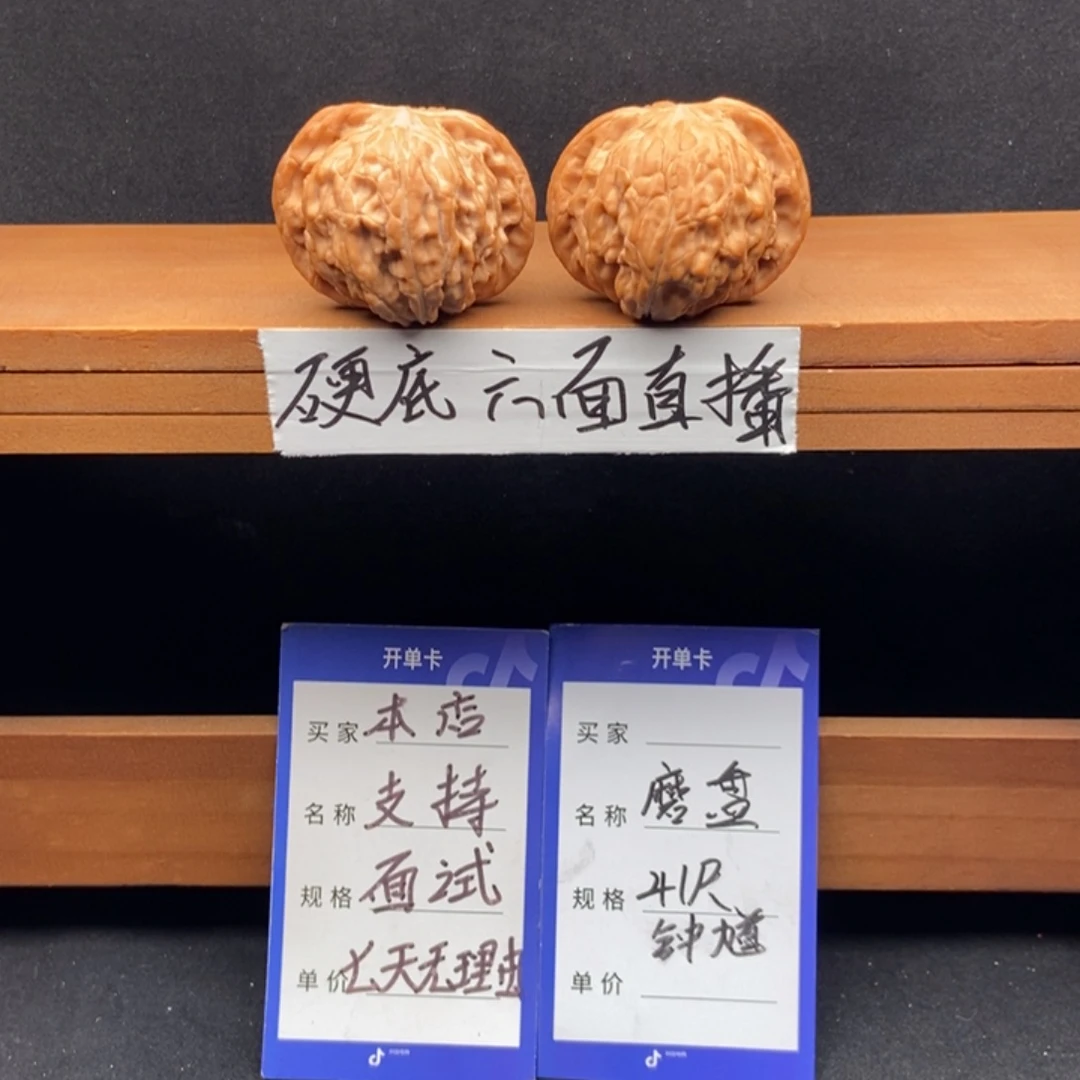 硬底 六面直播
开单卡
买家 本店
名称 支持
规格 面试
单价 七天无理由
开单卡
买家
名称 磨盘
规格 41尺
钟馗
单价